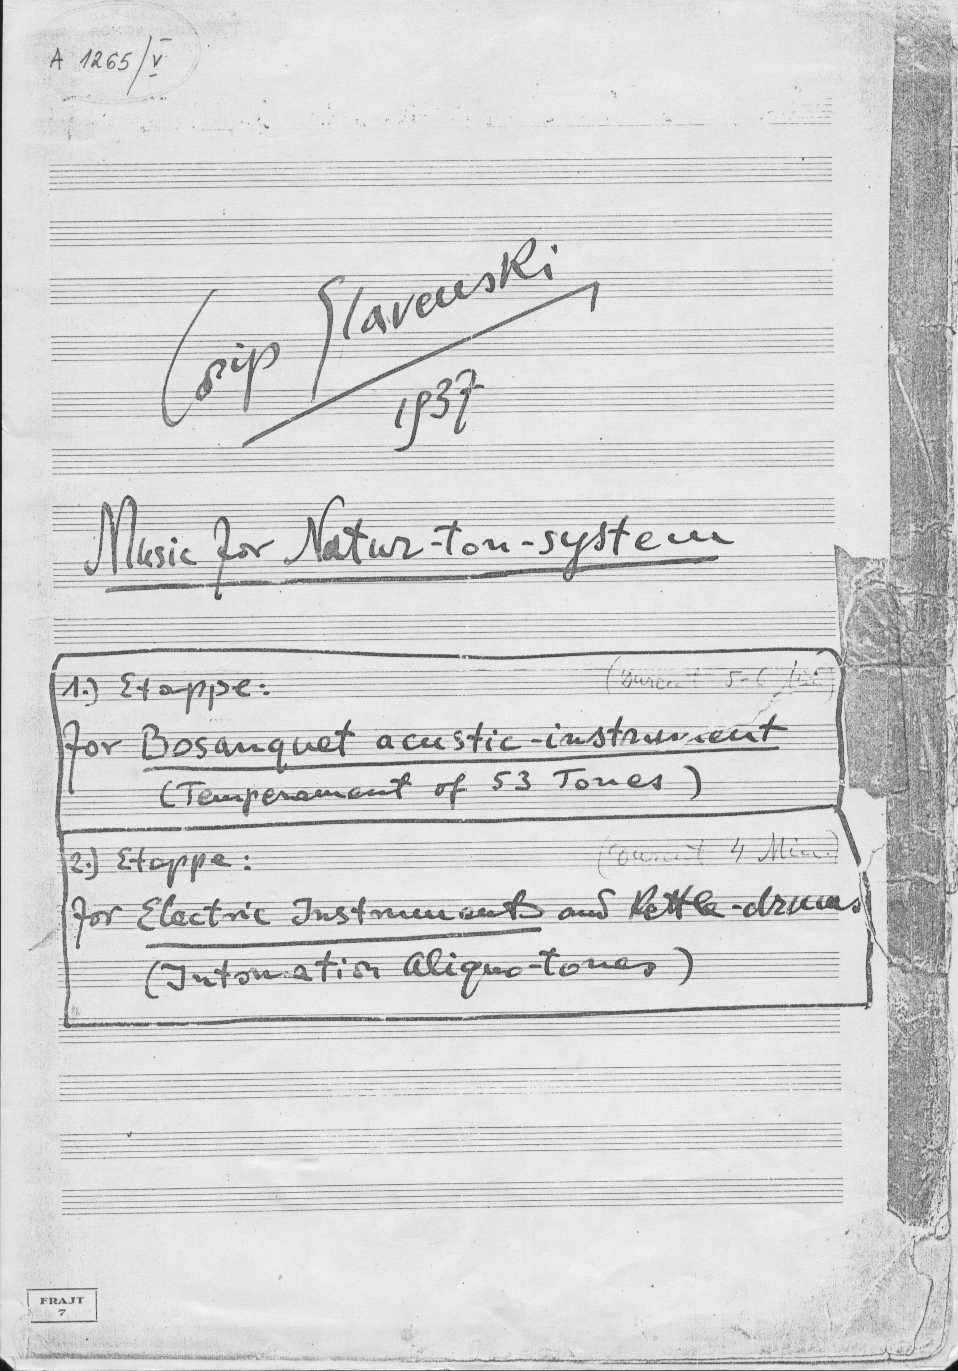 A 1265/V
Josip Slavenski
1937
Music for Natur-ton-system
1.) Etappe:
for Bosanquet acustic-instrument
(Temperament of 53 Tones)
2.) Etappe: 4 Min.)
for Electric Instruments and Kettle-drums
(Intonation Aliquo-tones)
FRAJT
7